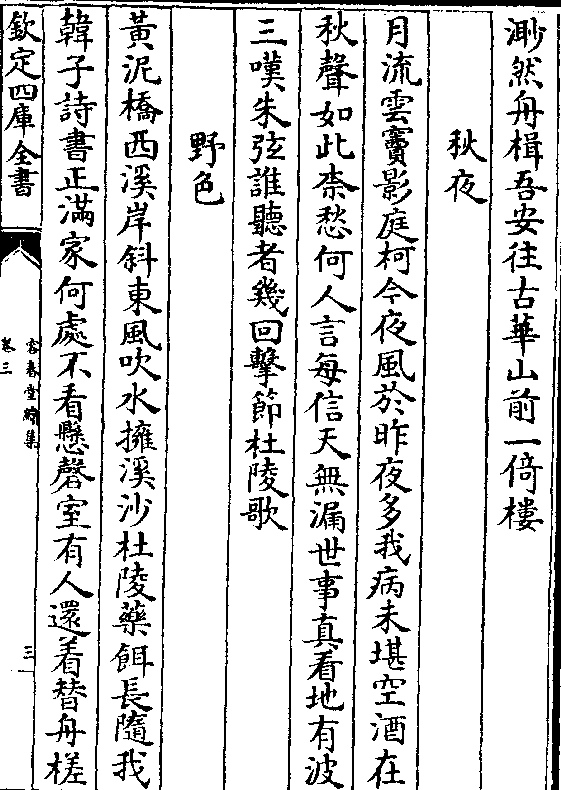 渺然舟楫吾安往古華山前一倚樓
秋夜
月流雲竇影庭柯今夜風於昨夜多我病未堪空酒在
秋聲如此柰愁何人言每信天無漏世事真看地有波
三嘆朱弦誰聽者幾回擊節杜陵歌
野色
黃泥橋西溪岸斜東風吹水擁溪沙杜陵藥餌長隨我
韓子詩書正滿家何處不看懸磬室有人還着替舟槎
欽定四庫全書
容春堂續集
卷三
三